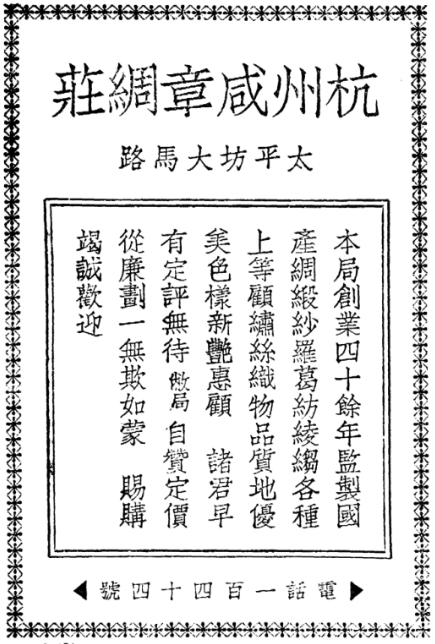 杭州咸章綢莊
太平坊大馬路
本局創業四十餘年監製國
產綢緞紗羅葛紡綾縐各種
上等顧繡絲織物品質地優
美色樣新艷惠顧　諸君早
有定評無待敝局自贊定價
從廉劃一無欺如蒙　賜購
竭誠歡迎
電話一百四十四號